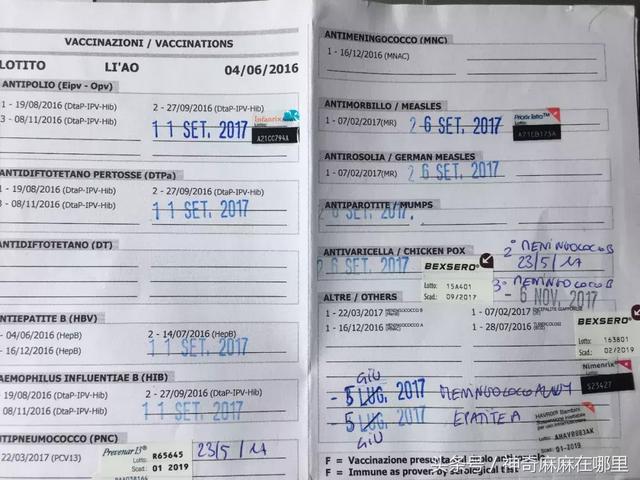 VACCINAZIONI / VACCINATIONS
LOTITO LI'AO 04/06/2016
ANTIPOLIO (Eipv - Opv)
1 - 19/08/2016 (DtaP-IPV-Hib) 2 - 27/09/2016 (DtaP-IPV-Hib)
3 - 08/11/2016 (DtaP-IPV-Hib) 11 SET. 2017
Infanrix
Lotto:
A21CC794A
ANTIDIFTOTETANO PERTOSSE (DTPa)
1 - 19/08/2016 (DtaP-IPV-Hib) 2 - 27/09/2016 (DtaP-IPV-Hib)
3 - 08/11/2016 (DtaP-IPV-Hib) 11 SET. 2017
ANTIDIFTOTETANO (DT)
ANTIEPATITE B (HBV)
- 04/06/2016 (HepB) 2 - 14/07/2016 (HepB)
- 16/12/2016 (HepB) 11 SET. 2017
AEMOPHILUS INFLUENTIAE B (HIB)
- 19/08/2016 (DtaP-IPV-Hib) 2 - 27/09/2016 (DtaP-IPV-Hib)
08/11/2016 (DtaP-IPV-Hib) 11 SET. 2017
NTIPNEUMOCOCCO (PNC)
22/03/2017 (PCV13)
Prevenar 13
Lotto: R65645
Scad.: 01 2019
23/5/17
ANTIMENINGOCOCCO (MNC)
1 - 16/12/2016 (MNAC)
ANTIMORBILLO / MEASLES
1 - 07/02/2017(MR) 26 SET. 2017
Priorix Tetra™
Lotto:
A71CB175A
ANTIROSOLIA / GERMAN MEASLES
1 - 07/02/2017(MR) 26 SET. 2017
ANTIPAROTITE / MUMPS
26 SET. 2017
ANTIVARICELLA / CHICKEN POX
26 SET. 2017
2° MENINGOCOCO B
23/5/17
BEXSERO
Lotto: 15A401
Scad.: 09/2017
3° MENINGOCOCO B
- 6 NOV. 2017
ALTRE / OTHERS
1 - 22/03/2017 MENINGOCOCCO B 1 - 07/02/2017
1 - 16/12/2016 MENINGOCOCCO A 1 - 28/07/2016
BEXSERO
Lotto: 163801
Scad.: 02/2019
Nimenrix
GIU
- 5 LUG. 2017 MENINGOCOCO ACWY
- 5 LUG. 2017 EPATITE A
GIU
Lotto:
AHAVB083AK
Scad.: 01-2019
F = Vaccinazione presunta
F = Immune as proven by serological test
头条号 / 神奇麻麻在哪里